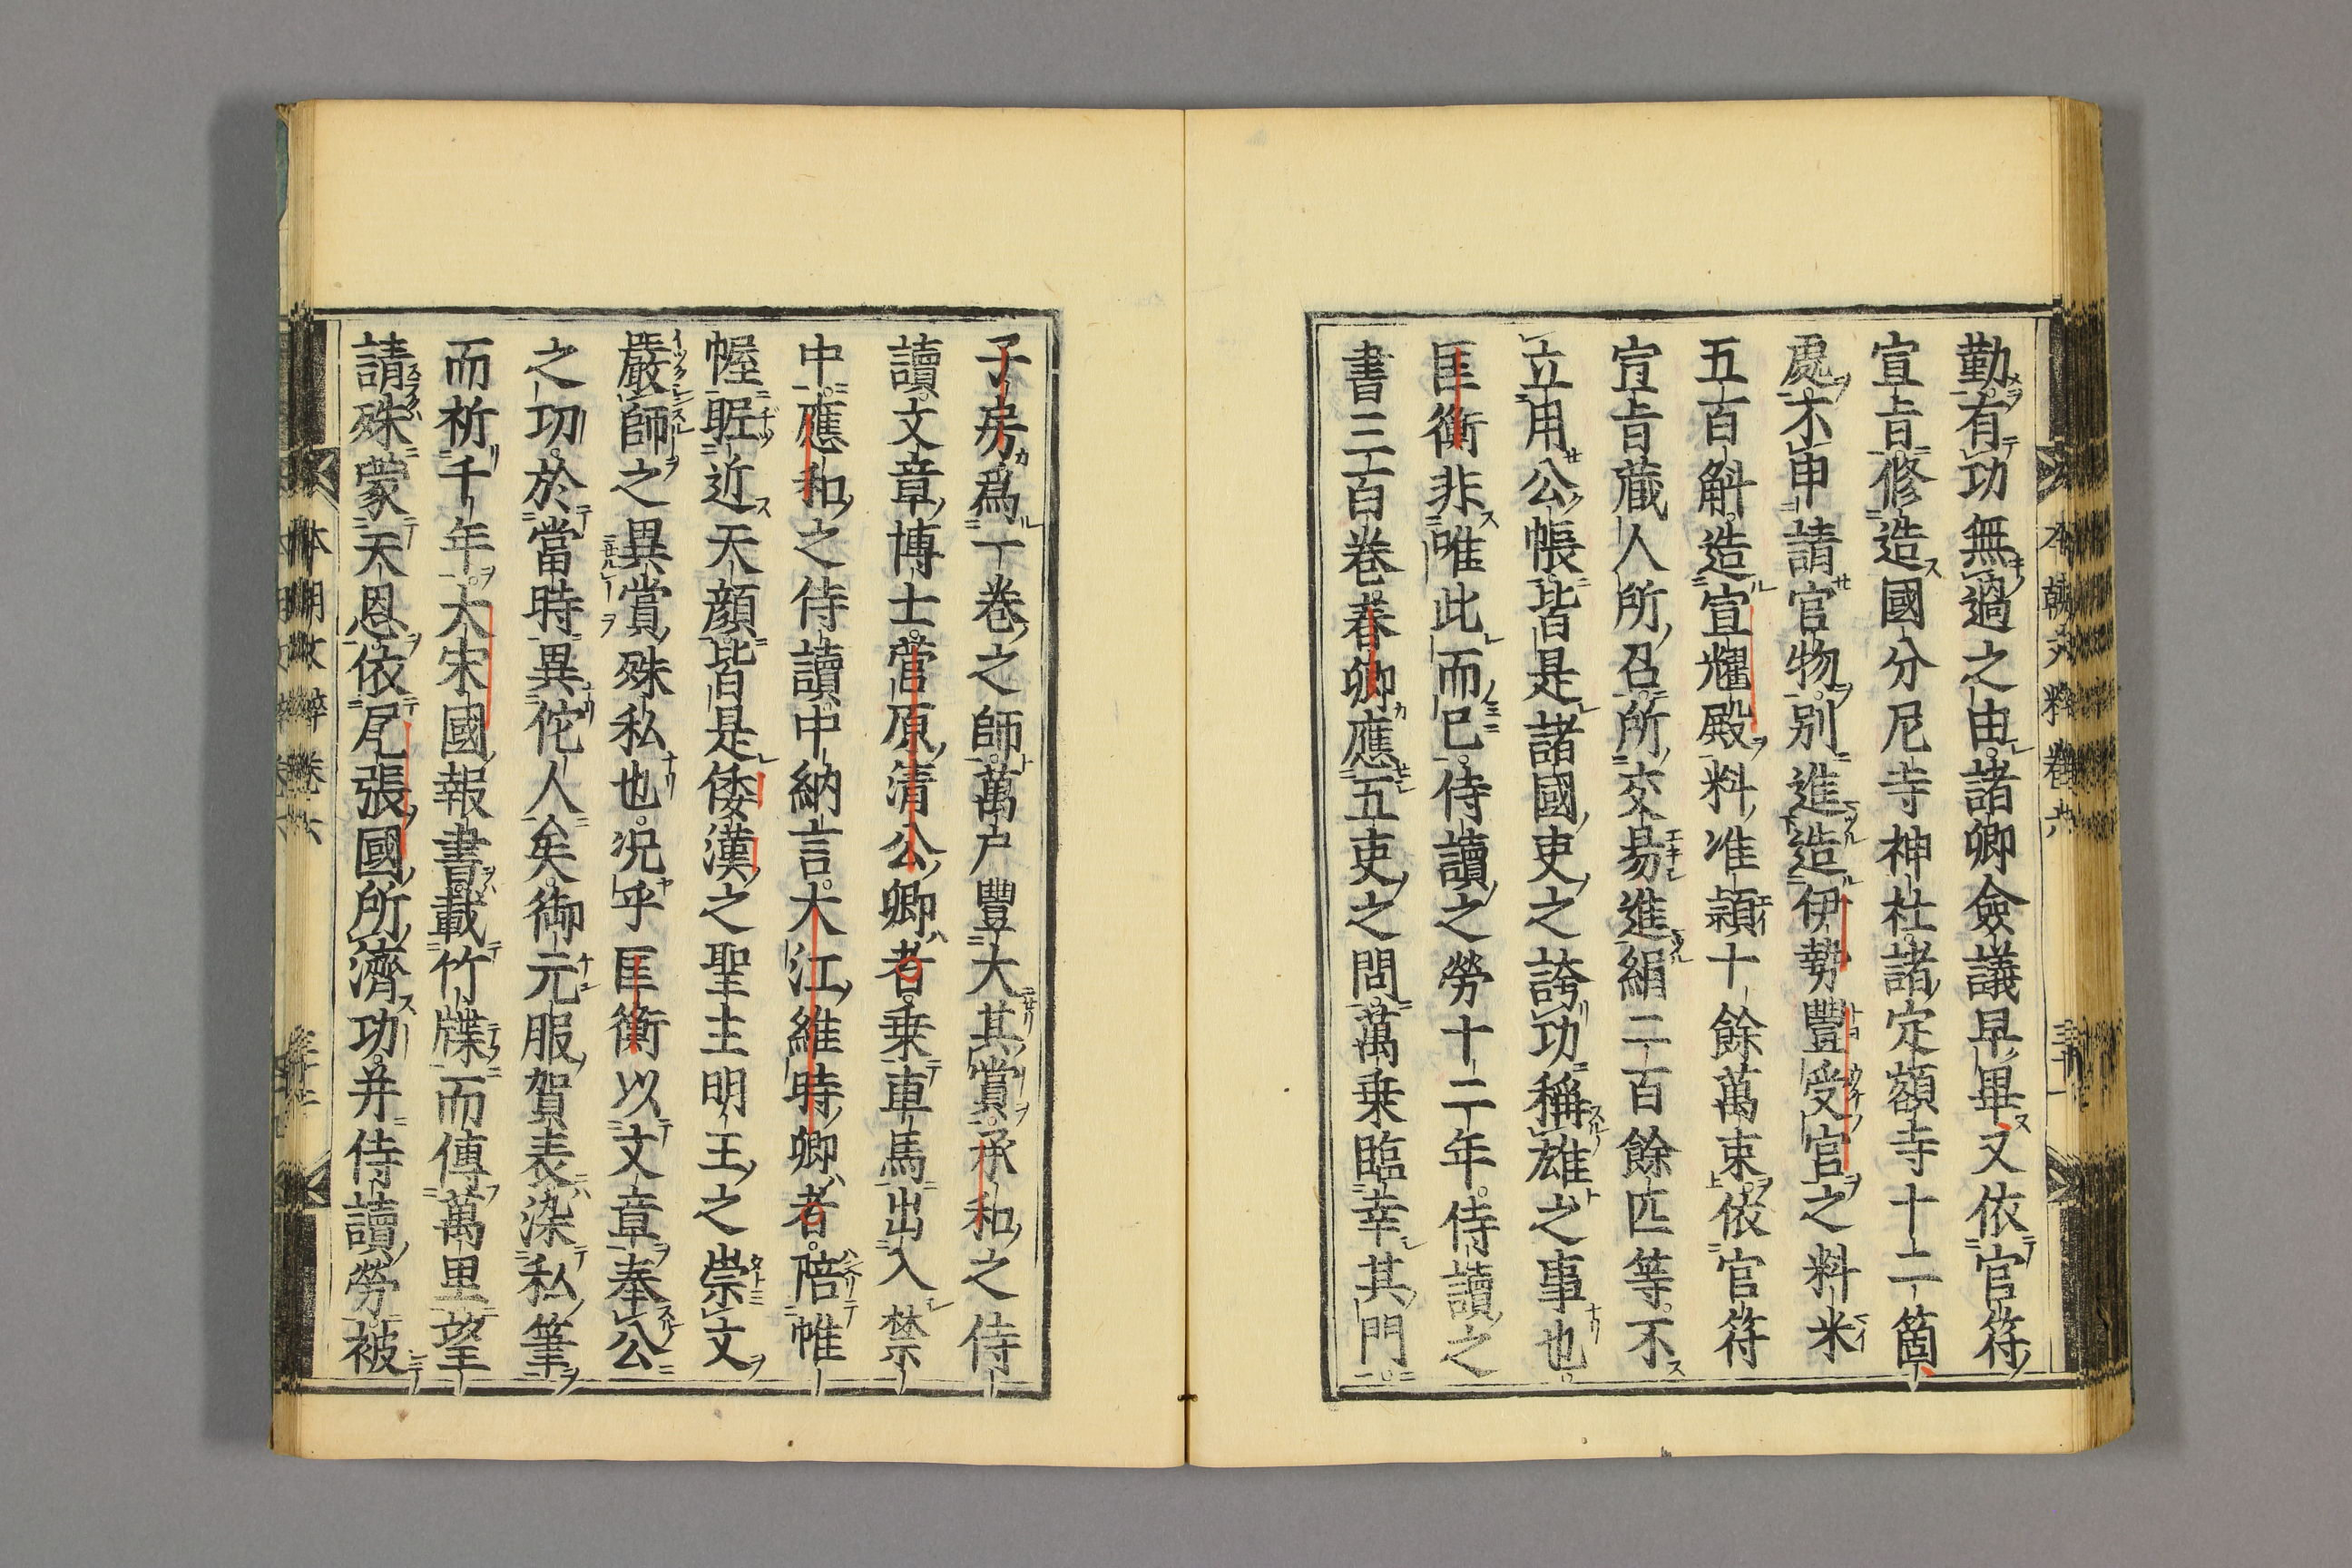 勤有功無過之由諸卿僉議早畢又依官符
宣旨修造國分尼寺神社諸定額寺十二箇
處不申請官物別進造伊勢豐受官之料米
五百斛造宣耀殿料准穎十餘萬束依官符
宣旨蔵人所召所交易進絹二百餘匹等不
立用公帳皆是諸國吏之誇功稱雄之事也
匡衡非唯此而已侍讀之勞十二年侍讀之
書三百卷春卿應五吏之問萬乗臨幸其門
本朝文粹卷六
三十一
子房爲一卷之師萬戸豐大其賞承和之侍
讀文章博士菅原清公卿者乗車馬出入禁
中應和之侍讀中納言大江維時卿者陪帷
幄昵近天顔皆是倭漢之聖主明王之崇文
嚴師之異賞殊私也况乎匡衡以文章奉公
之功於當時異佗人矣御元服賀表染私筆
而祈千年大宋國報書載竹牒而傳萬里望
請殊蒙天恩依尾張國所濟功并侍讀勞被
本朝文粹卷六